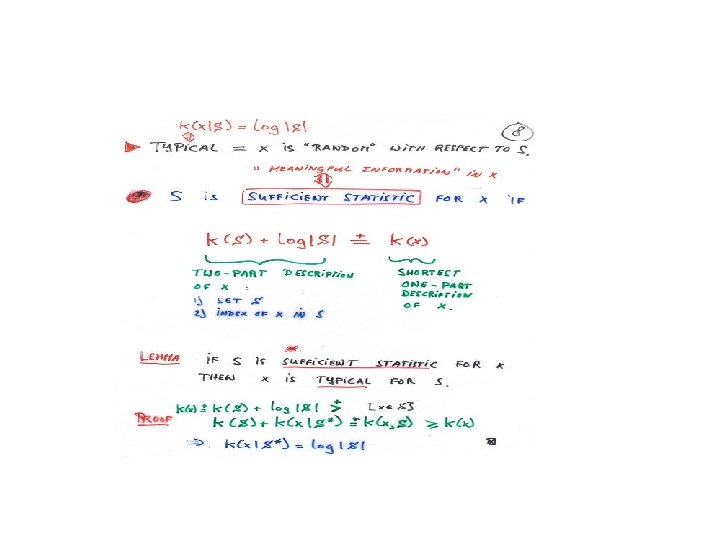 K(x|S) = log |S|
8
TYPICAL = x is "RANDOM" WITH RESPECT TO S.
"MEANINGFUL INFORMATION" IN X
S is SUFFICIENT STATISTIC FOR x IF
K(S) + log |S| ≐ K(x)
TWO-PART DESCRIPTION OF X :
1) SET S
2) INDEX OF X IN S
SHORTEST
ONE-PART
DESCRIPTION
OF X.
LEMMA IF S IS SUFFICIENT STATISTIC FOR x
THEN x is TYPICAL FOR S.
PROOF K(x) ≐ K(S) + log |S| ⩾ [x ∈ S]
K(S) + K(x|S*) ≐ K(x,S) ⩾ K(x)
⇒ K(x|S*) = log |S|